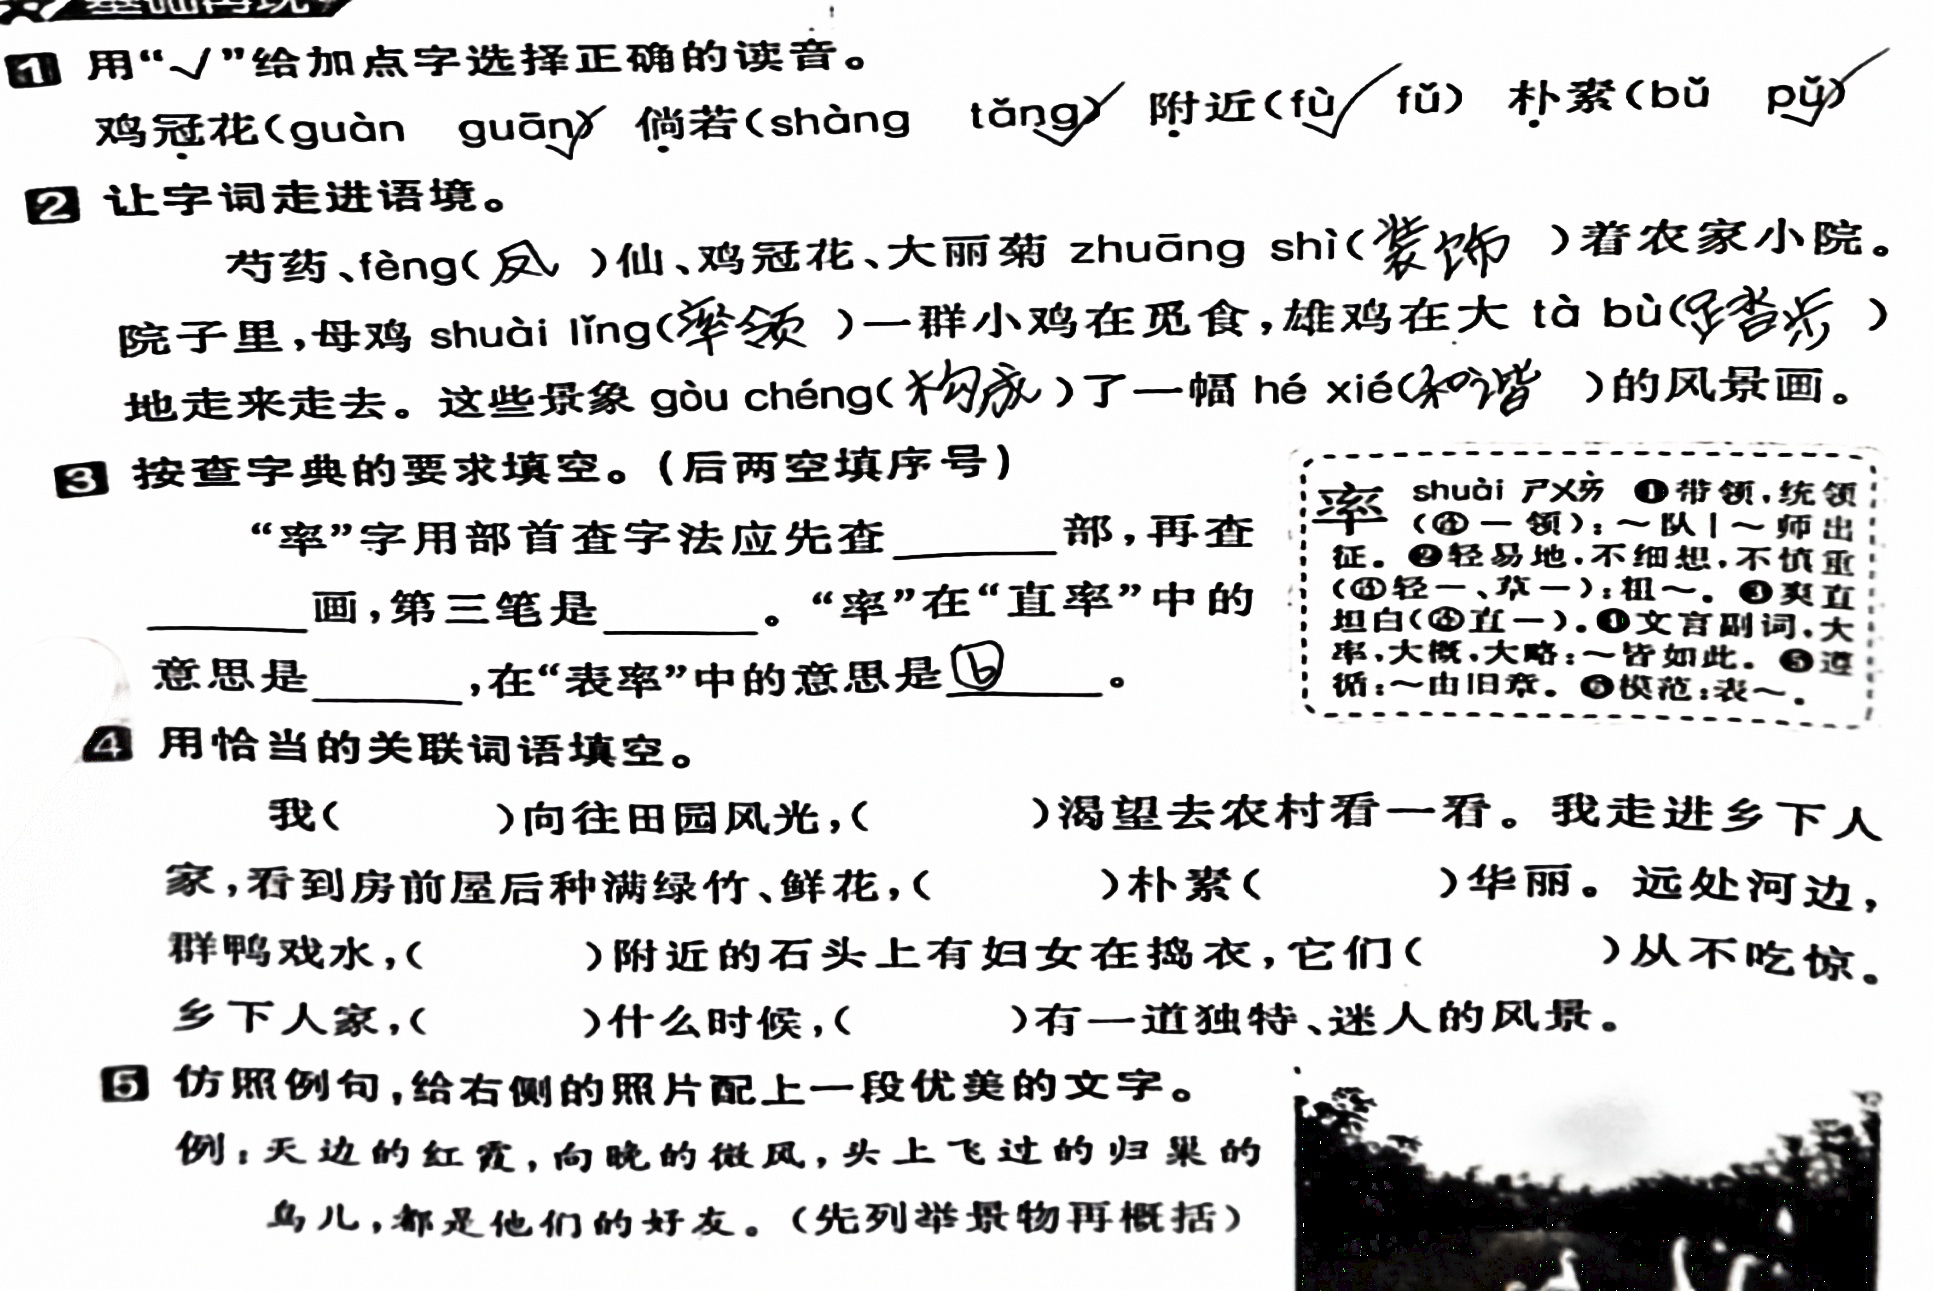 基础再现
1 用“√”给加点字选择正确的读音。
鸡冠花(guàn guān√) 倘若(shàng tǎng√) 附近(fù√ fǔ) 朴素(bǔ pǔ√)
2 让字词走进语境。
芍药、fèng(凤)仙、鸡冠花、大丽菊 zhuāng shì(装饰)着农家小院。
院子里,母鸡 shuài lǐng(率领)一群小鸡在觅食,雄鸡在大 tà bù(踏步)
地走来走去。这些景象 gòu chéng(构成)了一幅 hé xié(和谐)的风景画。
3 按查字典的要求填空。(后两空填序号)
“率”字用部首查字法应先查______部,再查
______画,第三笔是______。“率”在“直率”中的
意思是______,在“表率”中的意思是 6 。
率 shuài ㄕㄨㄞˋ ❶带领,统领
(㊣一领):~队|~师出
征。❷轻易地,不细想,不慎重
(㊣轻一、草一):粗~。❸爽直
坦白(㊣直一)。❹文言副词,大
率,大概,大略:~皆如此。❺遵
循:~由旧章。❻模范:表~。
4 用恰当的关联词语填空。
我( )向往田园风光,( )渴望去农村看一看。我走进乡下人
家,看到房前屋后种满绿竹、鲜花,( )朴素( )华丽。远处河边,
群鸭戏水,( )附近的石头上有妇女在捣衣,它们( )从不吃惊。
乡下人家,( )什么时候,( )有一道独特、迷人的风景。
5 仿照例句,给右侧的照片配上一段优美的文字。
例:天边的红霞,向晚的微风,头上飞过的归巢的
鸟儿,都是他们的好友。(先列举景物再概括)